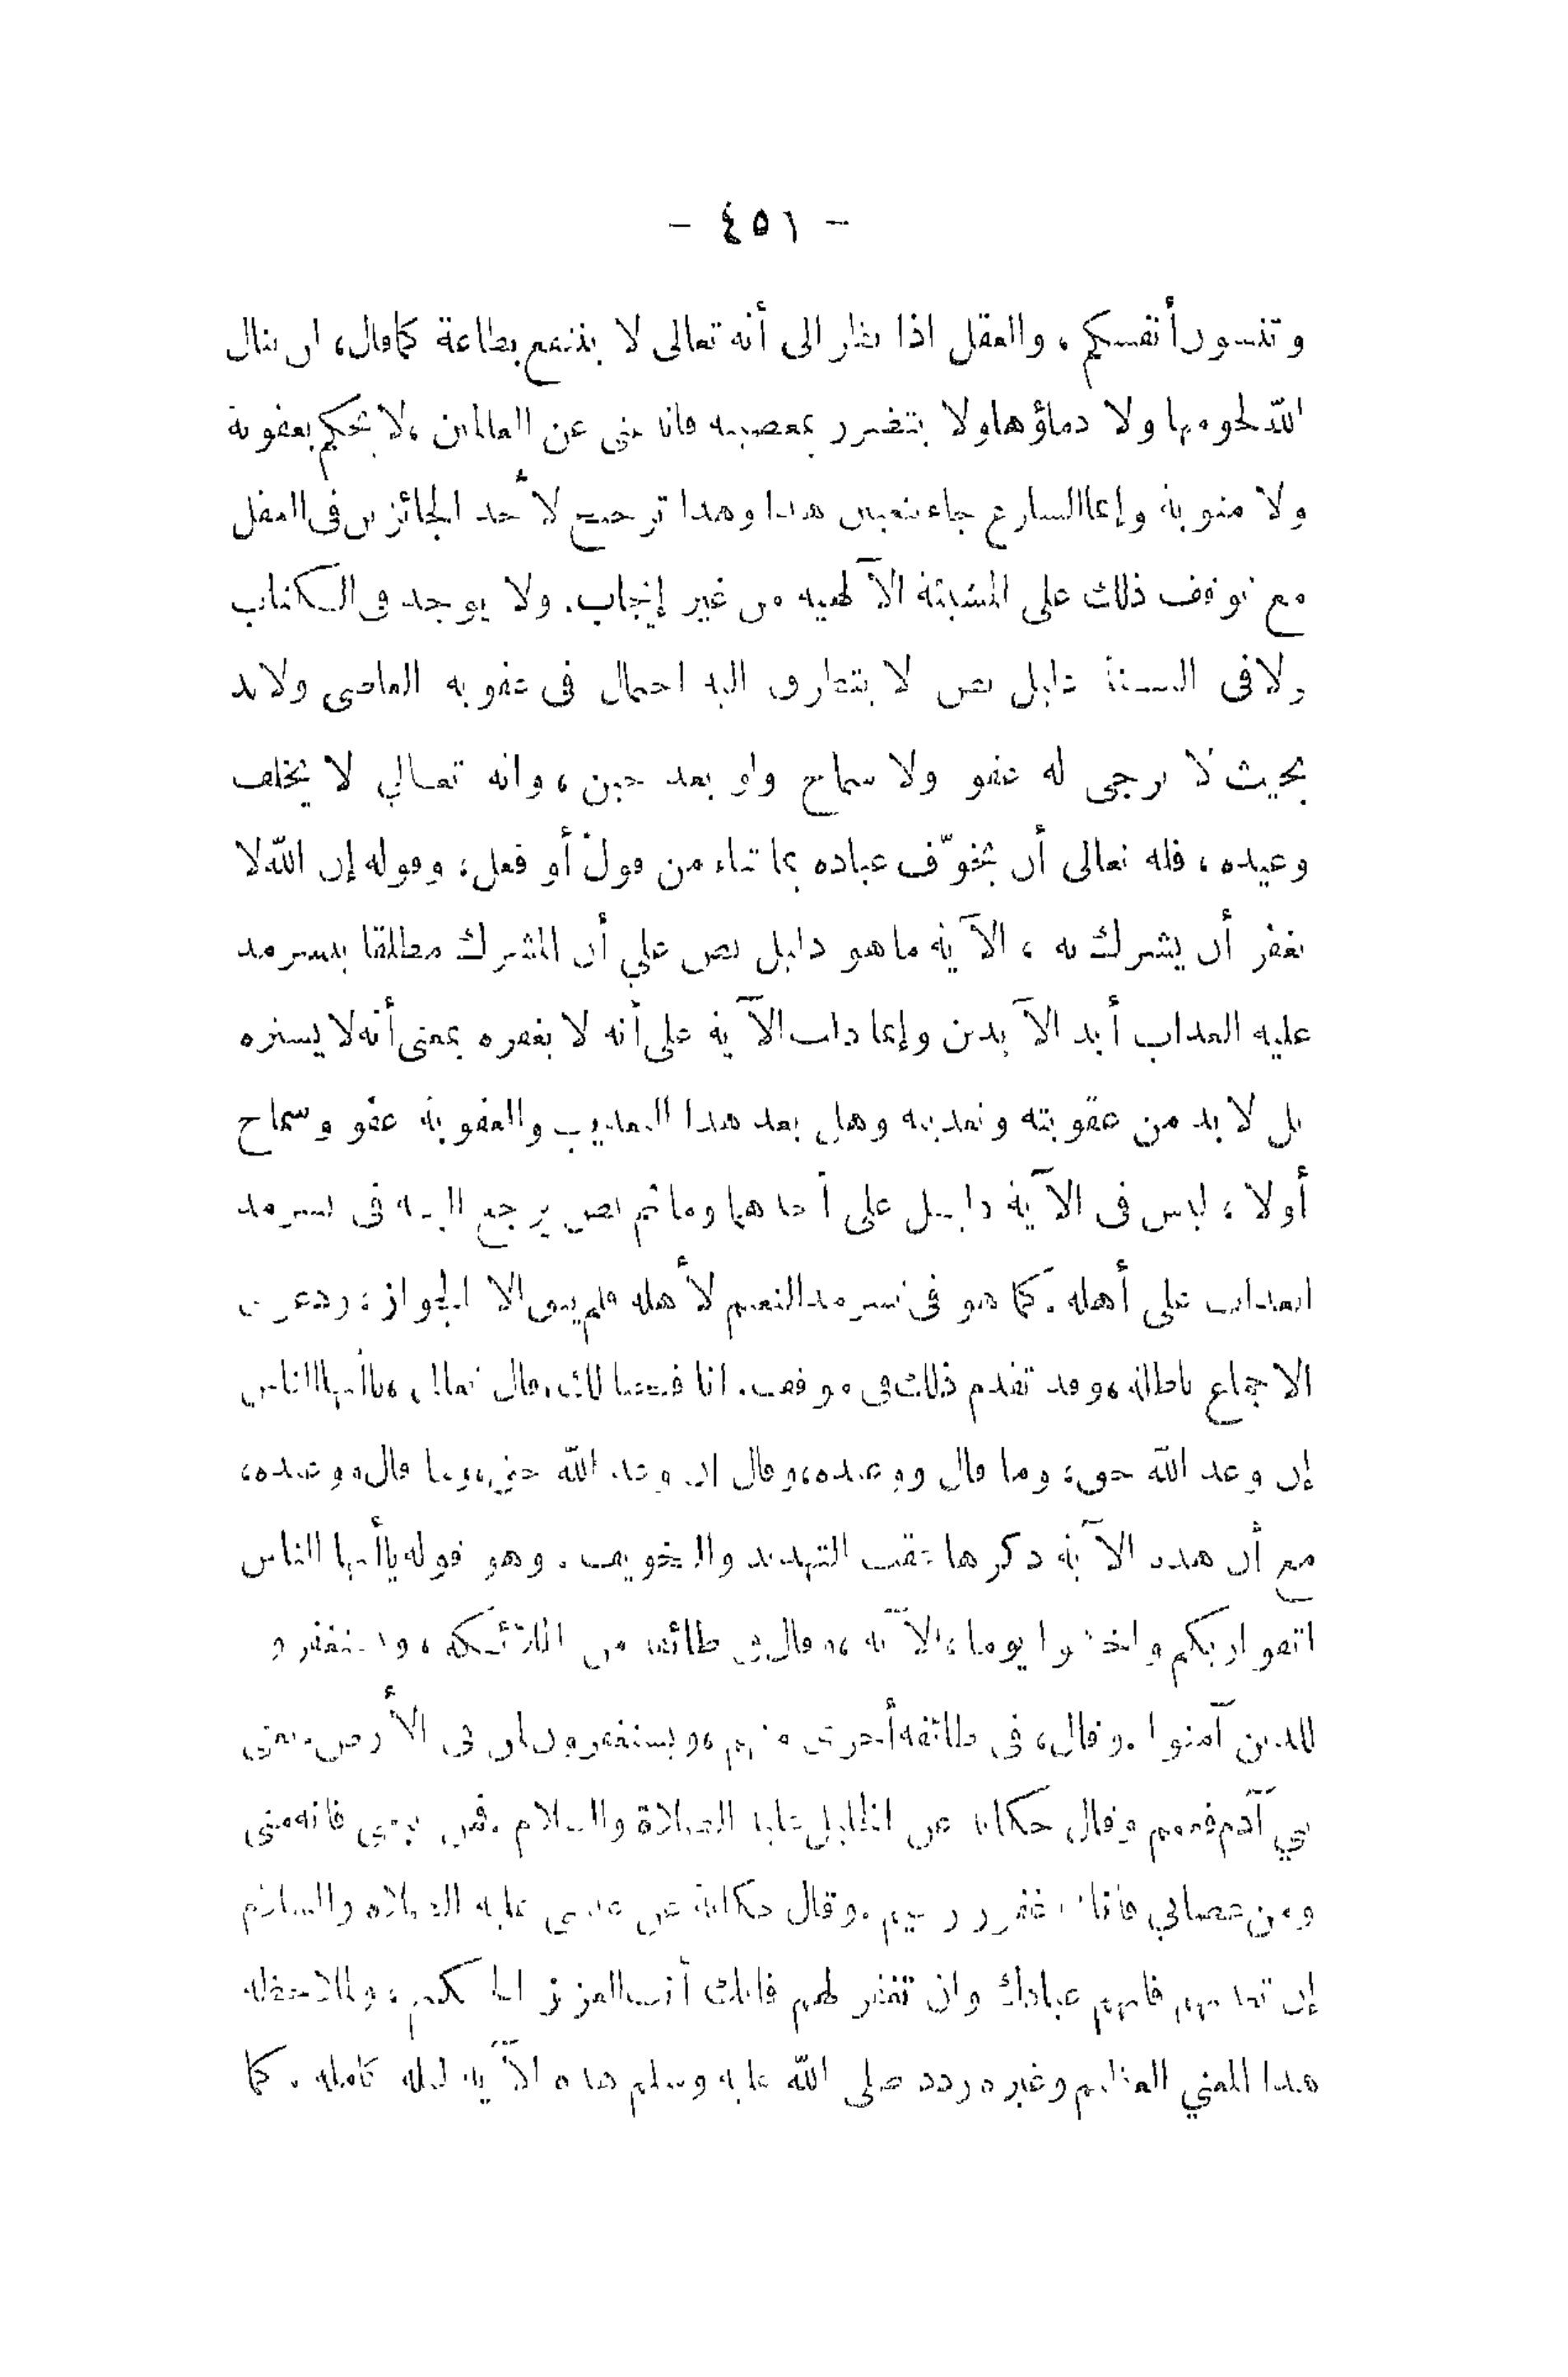 - ٤٥١ -
وتنسون أنفسكم، والعقل اذا نظر الى أنه تعالى لا ينتفع بطاعة كما قال، لن ينال
الله لحومها ولا دماؤها ولا يتضرر بمعصيه فانه غنى عن العالمين، لا يحكم بعقوبة
ولا مثوبة وإنما الشارع جاء بتعيين هذا وهذا ترجيح لأحد الجائزين فى العقل
مع توقف ذلك على المشيئة الآلهيه من غير إيجاب. ولا يوجد فى الكتاب
ولا فى السنة دليل نص لا يتطرق اليه احتمال فى عقوبه العاصى ولابد
بحيث لا يرجى له عفو ولا سماح ولو بعد حين، وانه تعالي لا يخلف
وعيده، فله تعالى أن يخوّف عباده بما شاء من قول أو فعل، وقوله إن الله لا
يغفر أن يشرك به، الآية ما هو دليل نص علي أن المشرك مطلقا يتسرمد
عليه العذاب أبد الآبدين وإنما دلت الآية على أنه لا يغفره بمعنى أنه لا يستره
بل لا بد من عقوبته وتعذيبه وهل بعد هذا التعذيب والعقوبة عفو وسماح
أولا، ليس فى الآية دليل على أحدهما وما ثم نص يرجع اليه فى تسرمد
العذاب على أهله. كما هو فى تسرمد النعيم لأهله فلم يبق الا الجواز، ودعوى
الاجماع باطلة، وقد تقدم ذلك فى موقف. انا فتحنا لك. قال تعالى، ياأيها الناس
إن وعد الله حق، وما قال ووعيده، وقال ان وعد الله حق، وما قال، ووعيده،
مع أن هذه الآية ذكرها عقب التهديد والتخويف. وهو قوله ياأيها الناس
اتقوا ربكم واخشوا يوما، الآية، وقال فى طائفة من الملائكه، ويستغفرو
للذين آمنوا. وقال، فى طائفه أخرى منهم، ويستغفرون لمن فى الأرض. يعنى
بني آدم فهم وقال حكاية عن الخليل عليه الصلاة والسلام. فمن تبعنى فانه منى
ومن عصاني فانك غفور رحيم. وقال حكاية عن عيسى عليه الصلاة والسلام
إن تعذبهم فانهم عبادك وان تغفر لهم فانك أنت العزيز الحكيم، ولملاحظه
هذا المعني العظيم وغيره ردد صلى الله عليه وسلم هذه الآيه ليله كامله. كما